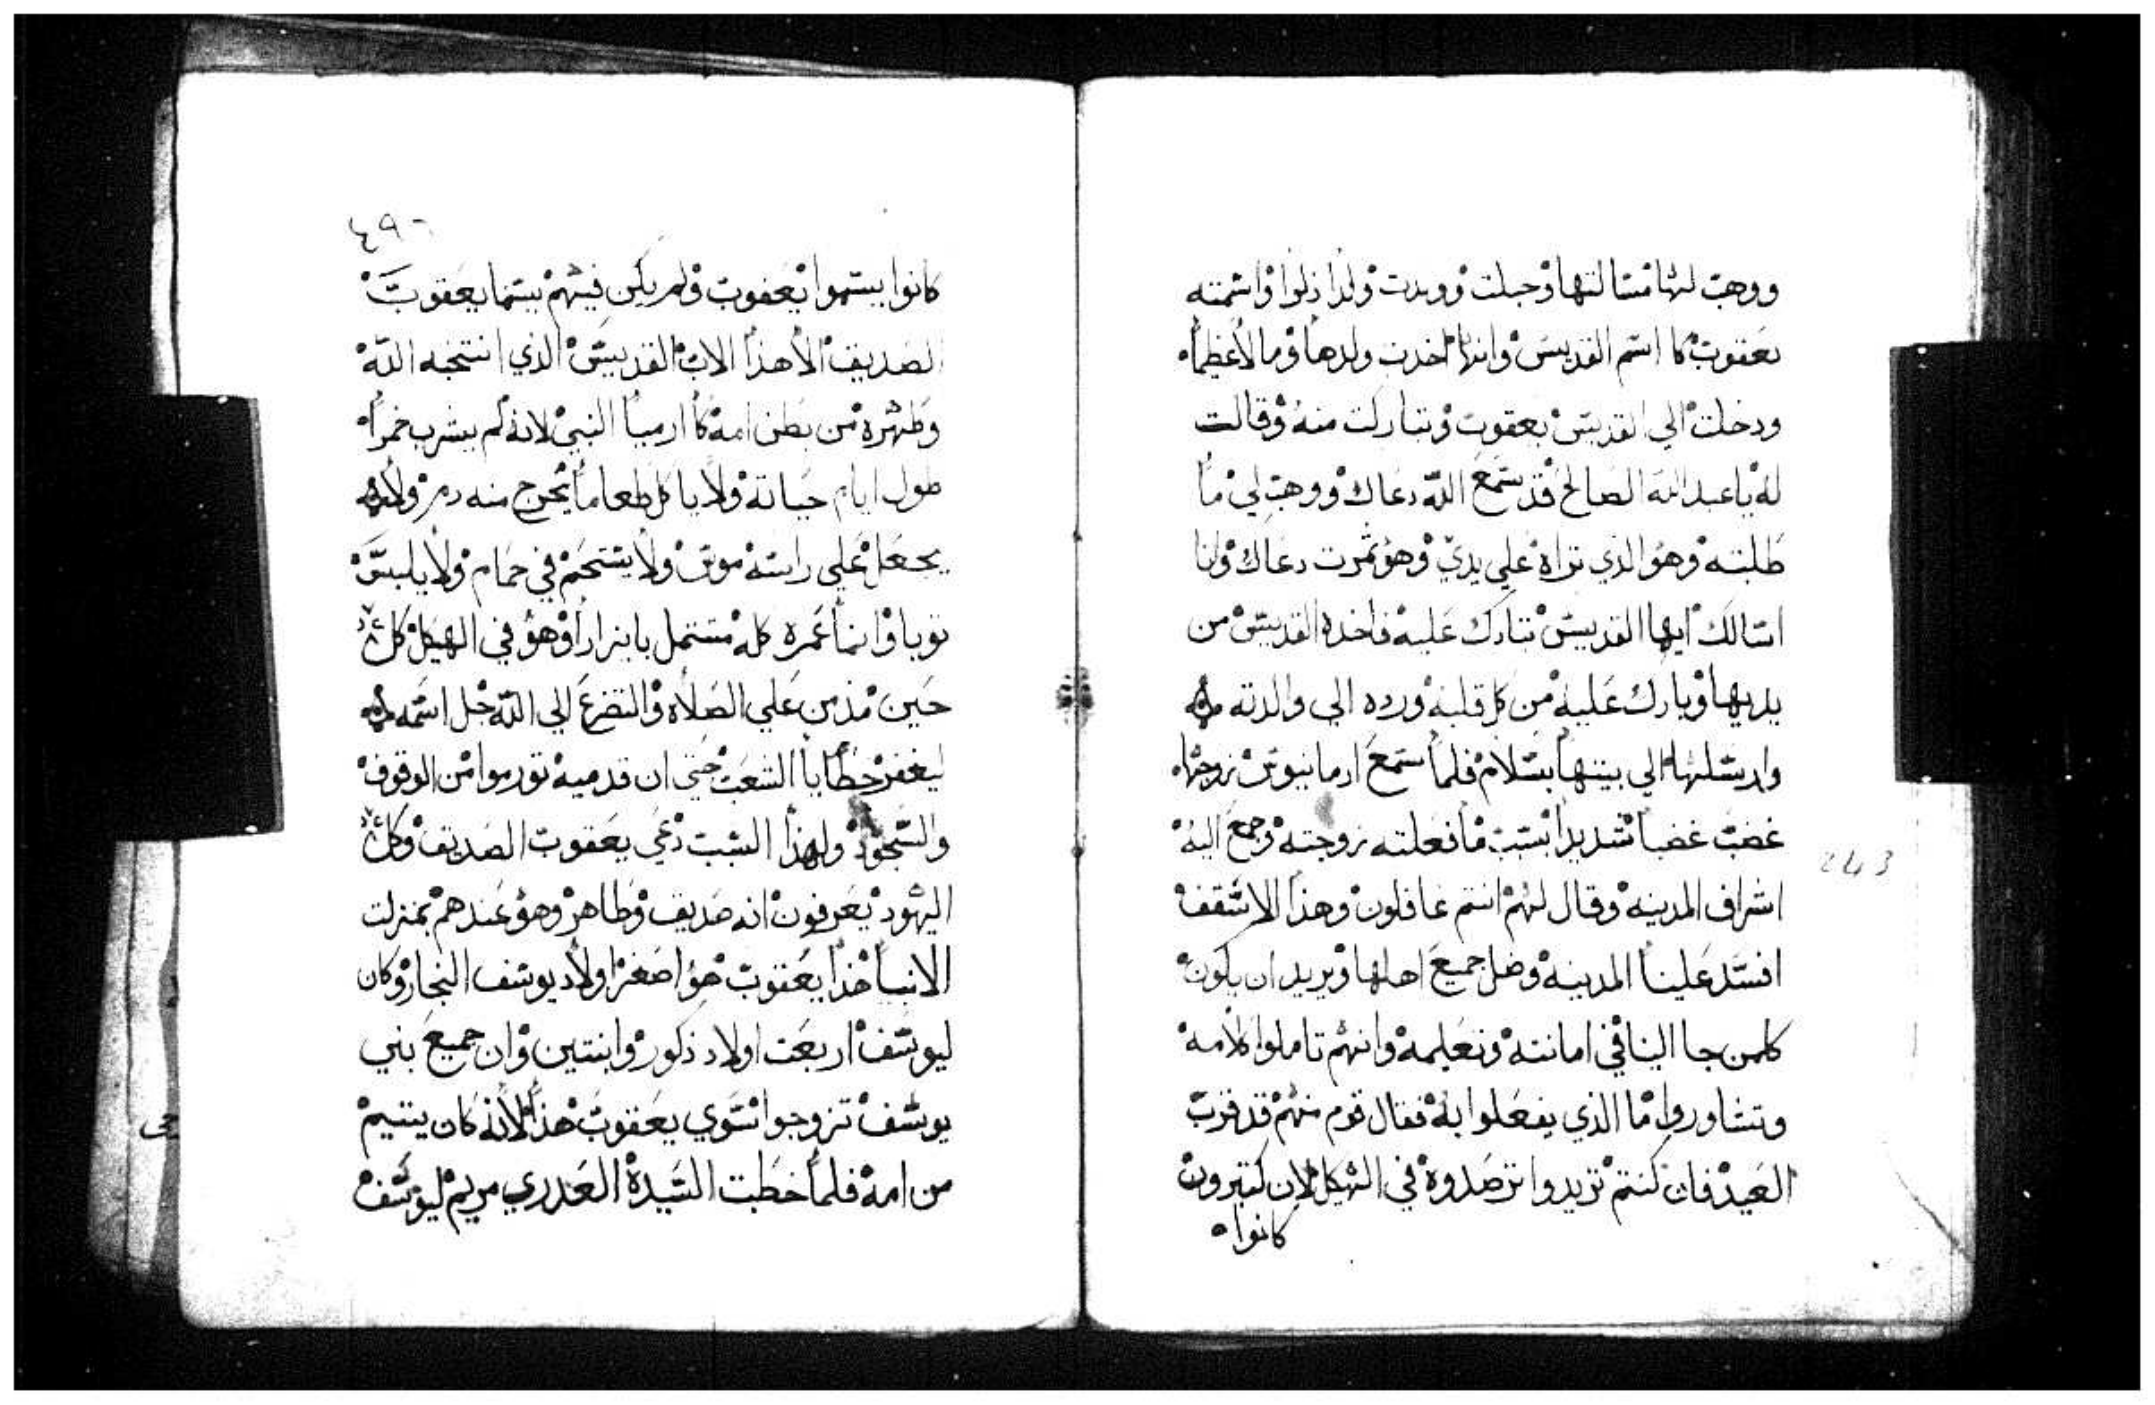 ووهب لها مسالتها وحبلت وولدت ولدا ذكرا واسمته
يعقوب كا اسم القديس وانها اخدت ولدها ومالا عظيما
ودخلت الي القديس يعقوب وتباركت منه وقالت
له يا عبد الله الصالح قد سمع الله دعاك ووهب لي ما
طلبته وهو الدي تراه علي يدي وهو تمرت دعاك وانا
اسالك ايها القديس تبارك عليه فاخده القديس من
يديها وبارك عليه من كل قلبه ورده الي والدته
وارسلها الي بيتها بسلام فلما سمع ارمانيوس زوجها
غضب غضبا شديدا بسبب ما فعلته زوجته وجمع اليه
اشراف المدينه وقال لهم انتم غافلون وهذا الاسقف
افسد علينا المدينه وضل جميع اهلها ويريد ان يكون
كلمن جا الينا في امانته وتعليمه وانهم تاملوا كلامه
وتشاوروا ما الذي يفعلوا به فقال قوم منهم قد قرب
العيد فان كنتم تريدوا ترصدوه في الهيكل لان كتيرون
كانوا
٤٩٦
كانوا يسموا يعقوب ولم يكن فيهم يسما يعقوب
الصديق الا هذا الاب القديس الذي انتخبه الله
وطهره من بطن امه كا ارميا النبي لانه لم يشرب خمرا
طول ايام حياته ولا ياكل طعاما يخرج منه دم ولا
يجعل علي راسه موس ولا يستحم في حمام ولا يلبس
توبا وانما عمره كله مشتمل بايزارا وهو في الهيكل كل
حين مذمن علي الصلاه والتضرع الي الله جل اسمه
ليغفر خطايا الشعب حتي ان قدميه تورموا من الوقوف
والسجود ولهذا السبب دعي يعقوب الصديق وكل
اليهود يعرفون انه صديق وطاهر وهو عندهم بمنزلت
الانبيا هذا يعقوب هو اصغر اولاد يوسف النجار وكان
ليوسف اربعت اولاد ذكور وابنتين وان جميع بني
يوسف تزوجوا سوي يعقوب هذا لانه كان يتيم
من امه فلما خطبت السيدة العدري مريم ليوسف
243